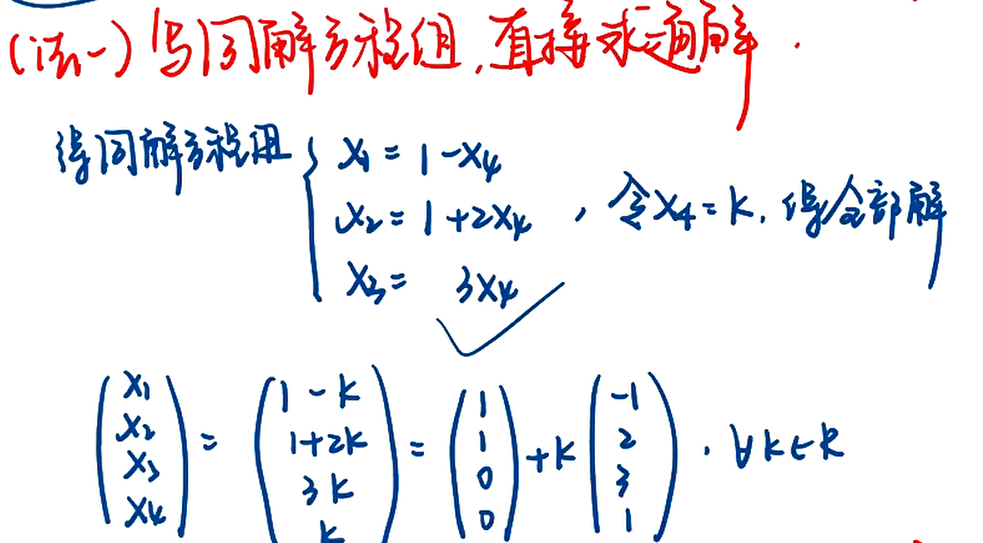 (法一)写同解方程组,直接求通解.
得同解方程组 { x₁ = 1-x₄
x₂ = 1+2x₄ , 令x₄=k, 得全部解
x₃ = 3x₄
(x₁ x₂ x₃ x₄) = (1-k 1+2k 3k k) = (1 1 0 0) + k (-1 2 3 1) . ∀k∈R